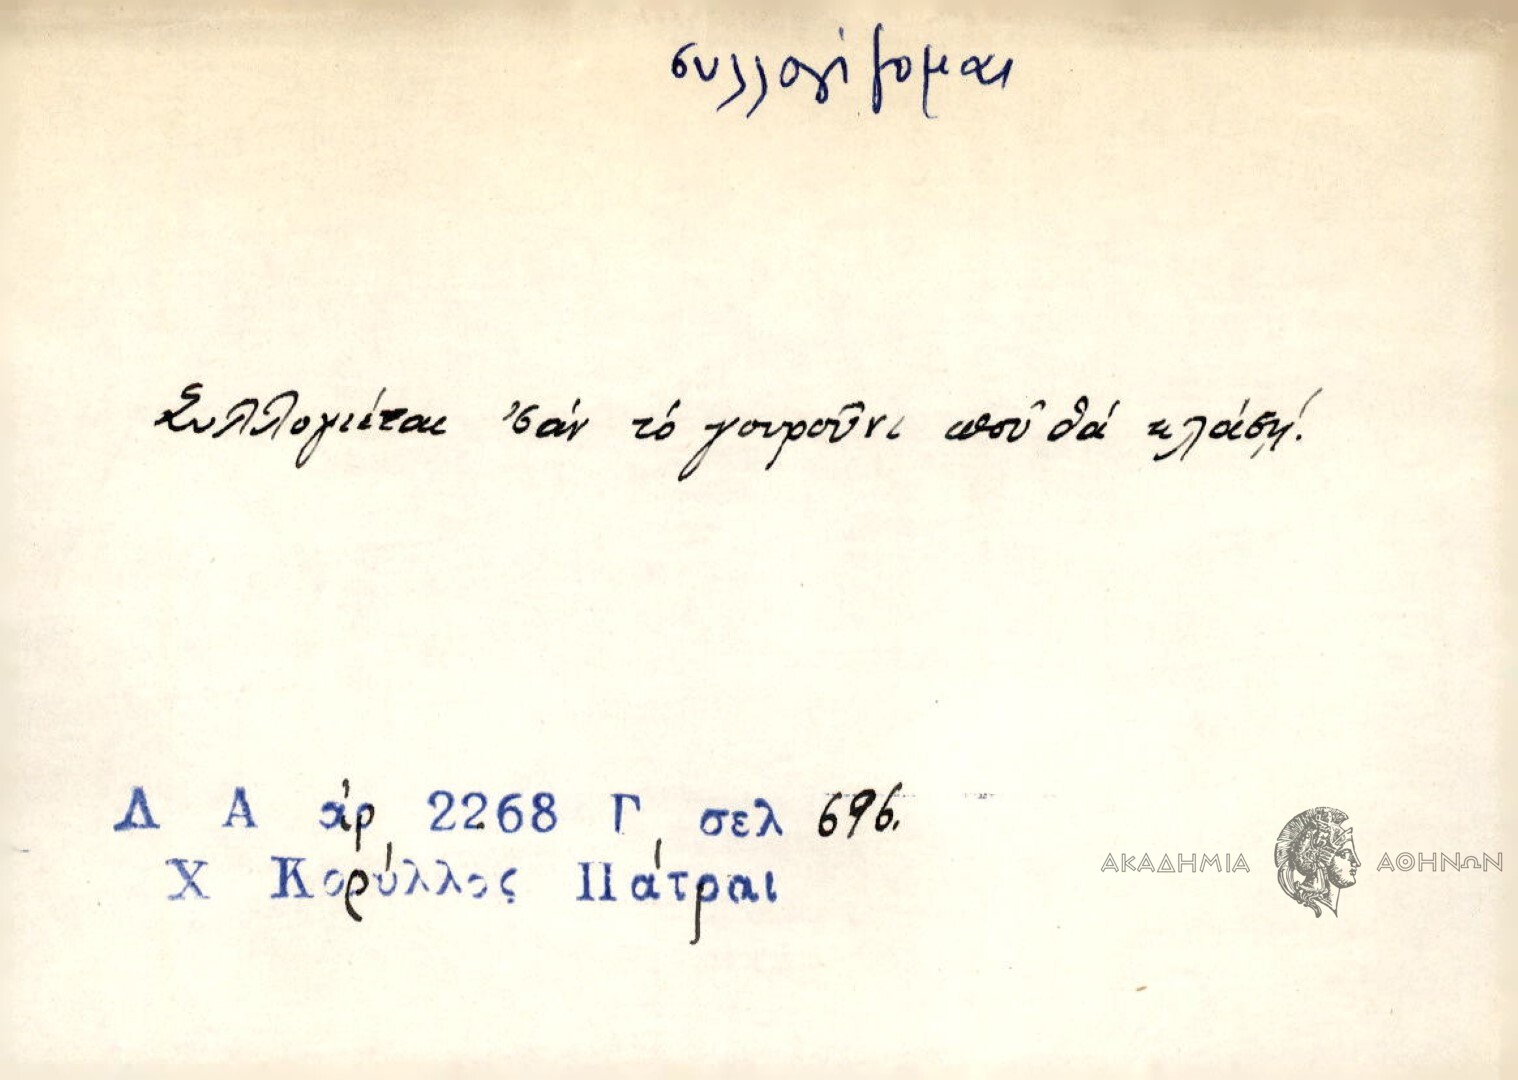 συλλογίζομαι
Συλλογιέται 'σάν τό γουροῦνι ποῦ θά κλάσῃ!
Λ Α ἀρ 2268 Γ σελ 696.
Χ Κορύλλος Πάτραι
ΑΚΑΔΗΜΙΑ ΑΘΗΝΩΝ